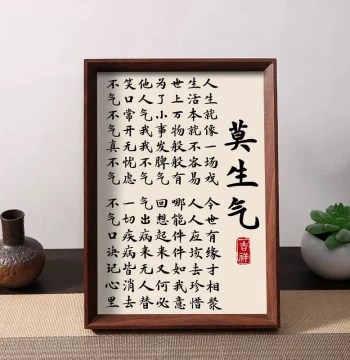 莫生气
吉祥
人生就像一场戏
生活本就不容易
世上万物般般有
为了小事发脾气
他人气我我不气
笑口常开无忧虑
不气不气真不气
今世有缘才相聚
人人应该去珍惜
哪能件件如我意
回想起来又何必
气出病来无人替
一切疾病皆消去
不气口诀记心里